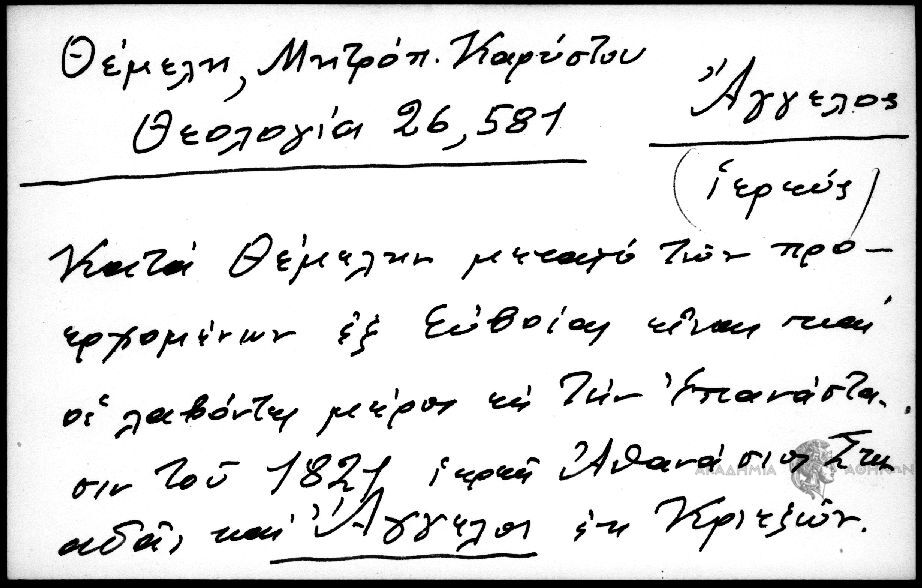 Θέμελη, Μητρόπ. Καρύστου
Θεολογία 26,581
Ἄγγελος
(ἱερεύς)
Κατά Θέμελην μεταξύ τῶν προ-
ερχομένων ἐξ Εὐβοίας εἶναι καί
οἱ λαβόντες μέρος εἰς τήν Ἐπανάστα-
σιν τοῦ 1821 ἱερεῖς Ἀθανάσιος
καί Ἄγγελος ἐκ Κριεζῶν.
ΑΚΑΔΗΜΙΑ ΑΘΗΝΩΝ